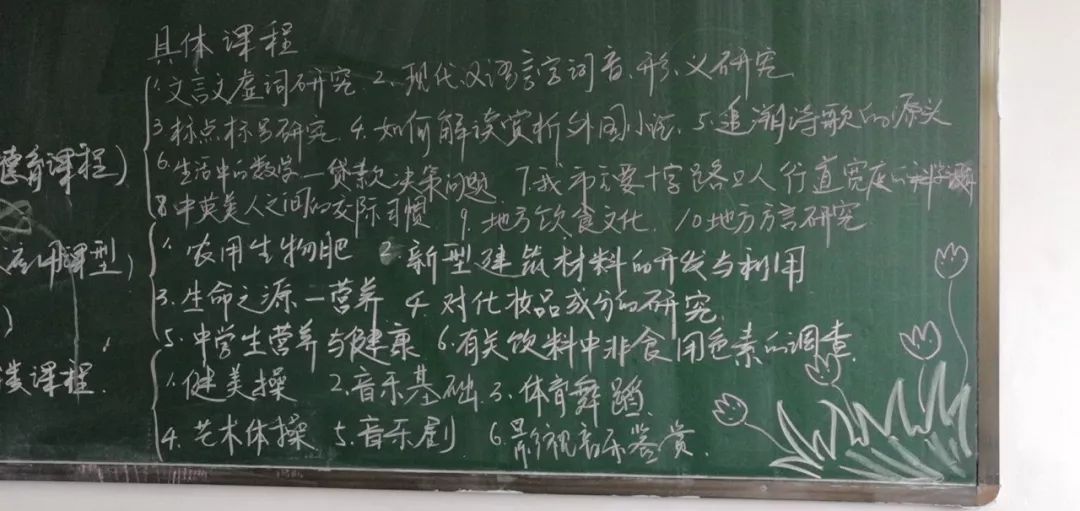 具体课程
1.文言文虚词研究 2、现代汉语言字词音、形、义研究
3标点标号研究 4.如何解读赏析外国小说. 5.追溯诗歌的源头
德育课程)
6.生活中的数学—贷款决策问题 7.我市主要十字路口人行道宽度的
8.中英美人之间的交际习惯 9.地方饮食文化. 10地方方言研究
应用课型)
1.农用生物肥 2.新型建筑材料的开发与利用
3.生命之源—营养 4.对化妆品成分的研究.
)
5.中学生营养与健康 6.有关饮料中非食用色素的调查.
课程.
1.健美操 2.音乐基础 3.体育舞蹈.
4.艺术体操 5.音乐剧 6.影视音乐鉴赏.